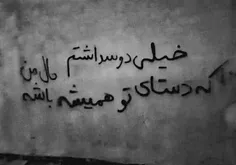 خیلی دوسداشتم
که دستای تو همیشه مال من باشه